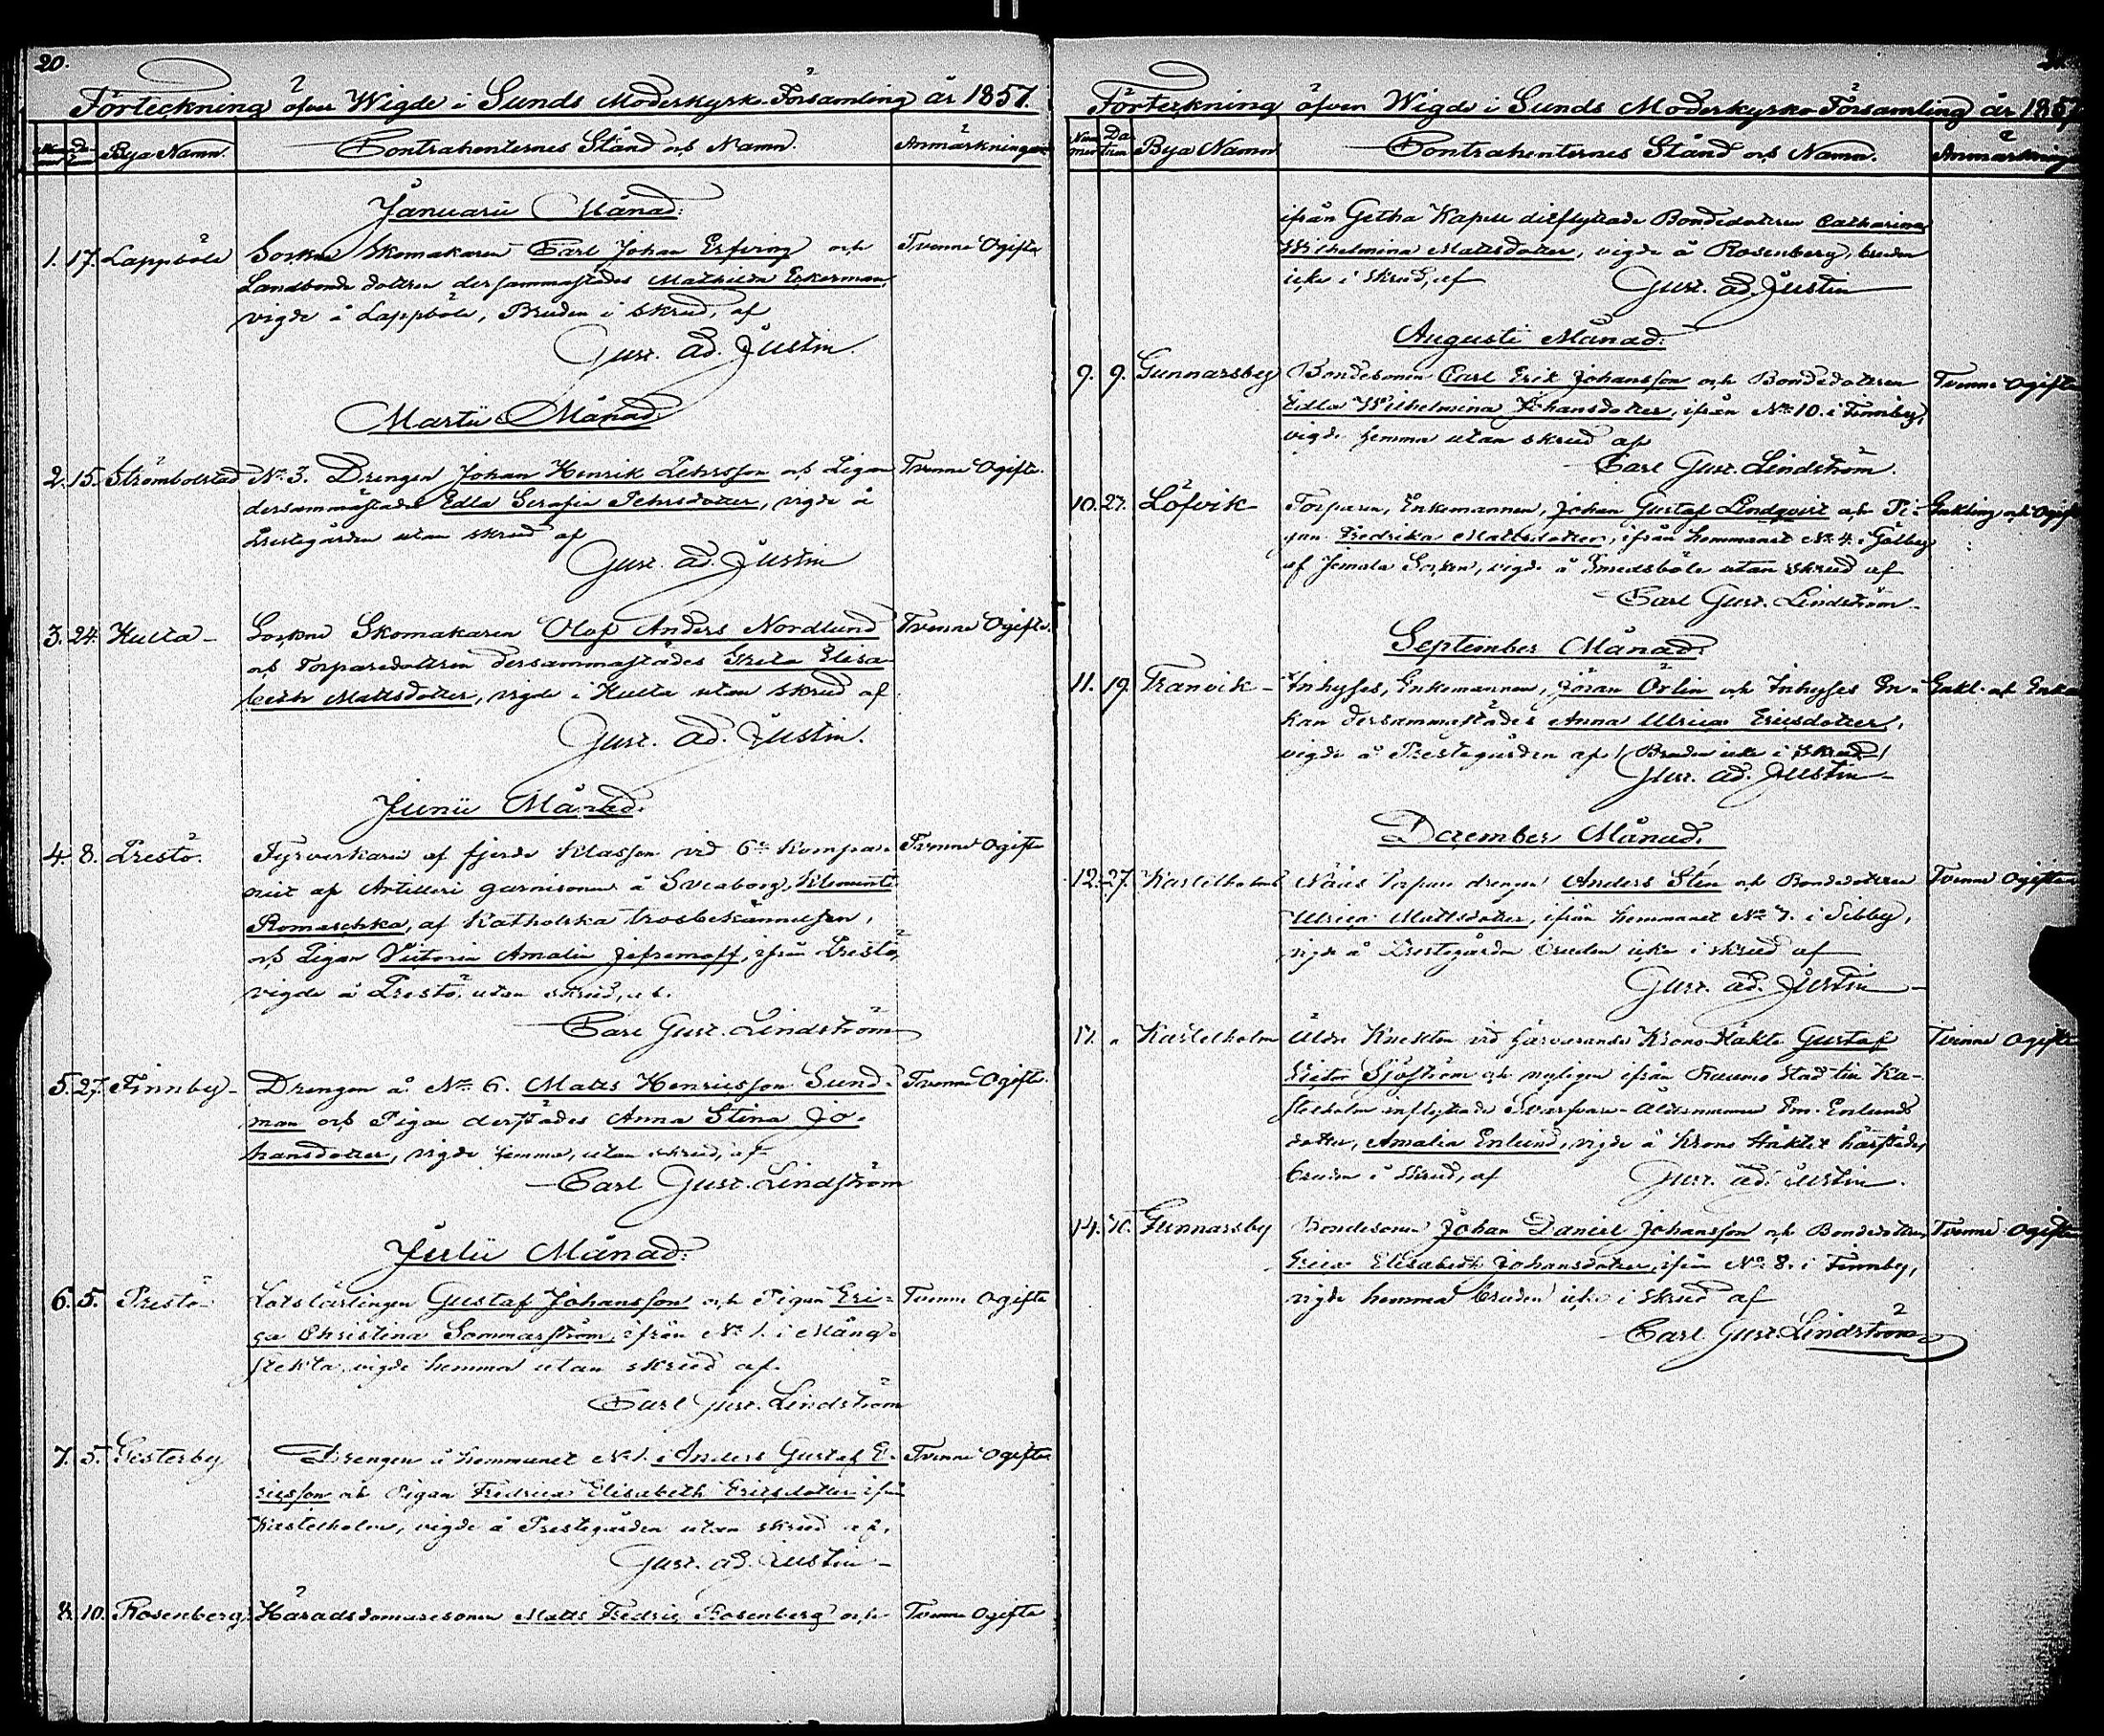 20.
Förteckning öfver Wigde i Sunds Moderkyrko-Församling år 1857.
Bya Namn. Contrahenternes Stånd och Namn. Anmärkningar
Januarii Månad.
1. 17. Lappböle Sockne Skomakaren Carl Johan Erfving och Tvenne Ogifta
Landbonde dottren dersammastädes Mathilda Eckerman,
vigde å Lappböle, Bruden i skrud, af
Gust. Ad. Justin.
Martii Månad.
2. 15. Strömbolstad No 3. Drengen Johan Henrik Pehrsson och Pigan Tvenne Ogifte.
dersammastädes Edla Serafia Pehrsdotter, vigde å
Prestegården utan skrud af
Gust. Ad. Justin
3. 24. Hulta - Sockne Skomakaren Olof Anders Nordlund Tvenne Ogifte.
och Torparedottren dersammastädes Greta Elisa-
beth Mattsdotter, vigde i Hulta utan skrud af
Gust. Ad. Justin.
Junii Månad.
4. 8. Prestö. Fyrverkaren af fjerde Klassen vid 6te Kompa- Tvenne Ogifte
niet af Artilleri garnisonen å Sveaborg, Klementi
Romaschka, af Katholska trosbekännelsen,
och Pigan Victoria Amalia Jefremoff, ifrån Prestö,
vigde å Prestö, utan skrud, af.
Carl Gust. Lindström
5. 27. Finnby - Drengen å No 6. Matts Henricsson Sund- Tvenne Ogifte.
man och Pigan derstädes Anna Stina Jo-
hansdotter, vigde hemma, utan skrud, af
Carl Gust. Lindström
Julii Månad.
6. 5. Prestö - Lotslärlingen Gustaf Johansson och Pigan Eri- Tvenne Ogifte
ca Christina Sommarström, ifrån No 1. i Mång-
stekta, vigde hemma utan skrud af.
Carl Gust. Lindström
7. 5. Gesterby Drengen å hemmanet No 1. Anders Gustaf E- Tvenne Ogifte
ricsson och Pigan Fredrica Elisabeth Ericsdotter ifrån
Kastelholm, vigde å Prestegården utan skrud af,
Gust. Ad. Justin -
8. 10. Rosenberg Häradsdomaresonen Matts Fredric Rosenberg och Tvenne Ogifte
Förteckning öfver Wigde i Sunds Moderkyrko-Församling år 1857
Bya Namn Contrahenternes Stånd och Namn. Anmärkningar
ifrån Getha Kapell ditflyttade Bondedottren Catharina
Wilhelmina Mattsdotter, vigde å Rosenberg, bruden
icke i skrud, af Gust. Ad. Justin
Augusti Månad.
9. 9. Gunnarsby Bondesonen Carl Erik Johansson och Bondedottren Tvenne Ogifte
Edla Wilhelmina Johansdotter, ifrån No 10. i Finnby,
vigde hemma utan skrud af
Carl Gust. Lindström.
10. 27. Löfvik Torparen, Enkemannen, Johan Gustaf Lindqvist och Pi- Enkling och Ogift
gan Fredrika Mattsdotter, ifrån hemmanet No 4. i Gölby
af Jomala Socken, vigde å Smedsböle utan skrud af
Carl Gust. Lindström -
September Månad.
11. 19. Tranvik - Inhyses, Enkemannen, Jöran Örlin och Inhyses En- Enkl. och Enka
kan dersammastädes Anna Ulrica Ericsdotter,
vigde å Prestegården af / Bruden icke i skrud /
Gust. Ad. Justin -
December Månad.
12. 27. Kastelholms Näiis Torpare drengen Anders Sten och Bondedottren Tvenne Ogifte
Ulrica Mattsdotter, ifrån hemmanet No 7. i Sibby,
vigde å Prestegården bruden icke i skrud af
Gust. Ad. Justin -
Kastelholm Äldre Knekten vid härvarande Krono Häkte Gustaf Tvenne Ogifte
Victor Sjöström och nyligen ifrån Raumo Stad till Ka-
stelholm inflyttade Svarfvare-Åldermannen Enlunds
dotter, Amalia Enlund, vigde å Krono Häktet härstädes,
bruden i skrud, af Gust. Ad. Justin.
14. Gunnarsby Bondesonen Johan Daniel Johansson och Bondedottren Tvenne Ogifte
Greta Elisabeth Johansdotter, ifrån No 8. i Finnby,
vigde hemma bruden icke i skrud af
Carl Gust. Lindström